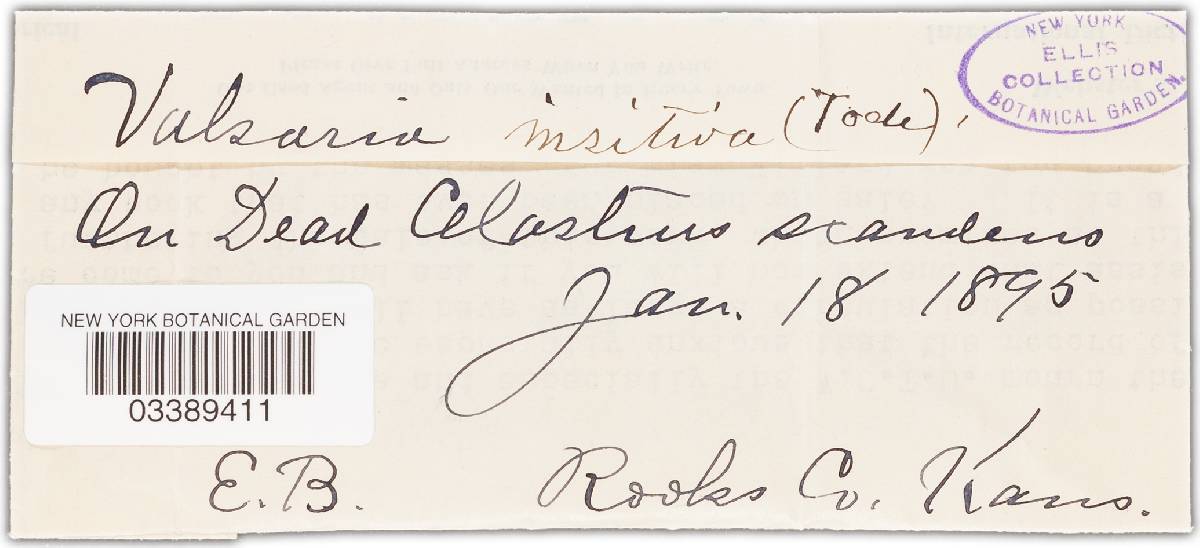 NEW YORK
ELLIS
COLLECTION
BOTANICAL GARDEN.
Valsaria insitiva (Tode),
On Dead Celastrus scandens
Jan. 18 1895
NEW YORK BOTANICAL GARDEN
03389411
E.B. Rooks Co. Kans.